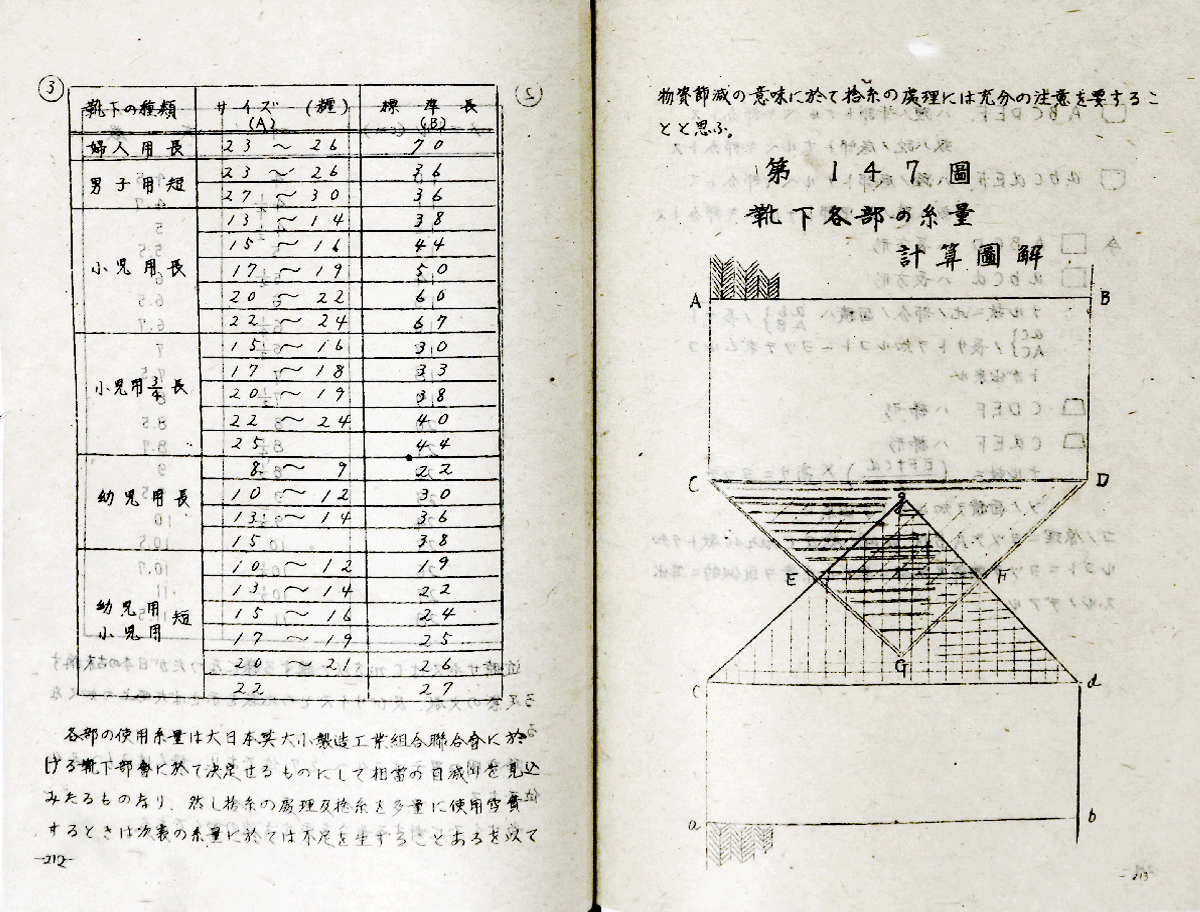 ③
靴下の種類 サイズー(糎)(A) 標準長(B)
婦人用長 23〜26 70
男子用短 23〜26 36
27〜30 36
小児用長 13〜14 38
15〜16 44
17〜19 50
20〜22 60
22〜24 67
小児用3/4長 15〜16 30
17〜18 33
20〜19 38
22〜24 40
25 44
幼児用長 8〜9 22
10〜12 30
13〜14 36
15 38
幼児用 小児用 短 10〜12 19
13〜14 22
15〜16 24
17〜19 25
20〜21 26
22 27
各部の使用糸量は大日本莫大小製造工業組合聯合會に於
ける靴下部會に於て決定せるものにして相當の目減りを見込
みたるものなり、然し捨糸の處理及捨糸を多量に使用
するときは次表の糸量に於ては不足を生ずることあるを以て
-212-
物資節減の意味に於て捨糸の處理には充分の注意を要するこ
とと思ふ。
第147圖
靴下各部の糸量
計算圖解
A B
C D
g
E F
G
c d
a b
-213